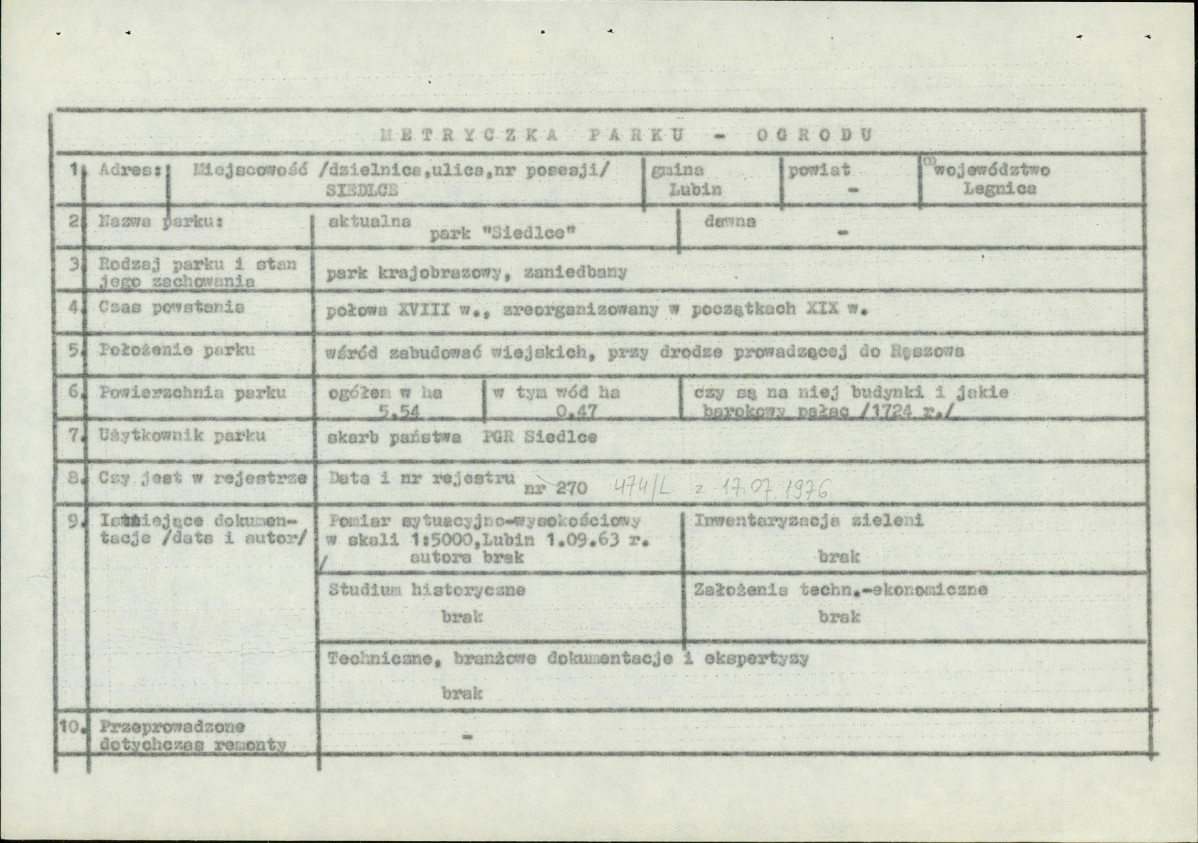 METRYCZKA PARKU - OGRODU
1. Adres: Miejscowość /dzielnica,ulica,nr posesji/ gmina powiat województwo
SIEDLCE Lubin - Legnica
2. Nazwa parku: aktualna dawna
park "Siedlce" -
3. Rodzaj parku i stan
jego zachowania
park krajobrazowy, zaniedbany
4. Czas powstania połowa XVIII w., zreorganizowany w początkach XIX w.
5. Położenie parku wśród zabudować wiejskich, przy drodze prowadzącej do Ręszowa
6. Powierzchnia parku ogółem w ha w tym wód ha czy są na niej budynki i jakie
5,54 0,47 barokowy pałac /1724 r./
7. Użytkownik parku skarb państwa PGR Siedlce
8. Czy jest w rejestrze Data i nr rejestru nr 270 474/L z 17.07.1976
9. Istniejące dokumen-
tacje /data i autor/
Pomiar sytuacyjno-wysokościowy
w skali 1:5000,Lubin 1.09.63 r.
/ autora brak
Inwentaryzacja zieleni
brak
Studium historyczne
brak
Założenia techn.-ekonomiczne
brak
Techniczne, branżowe dokumentacje i ekspertyzy
brak
10. Przeprowadzone
dotychczas remonty
-